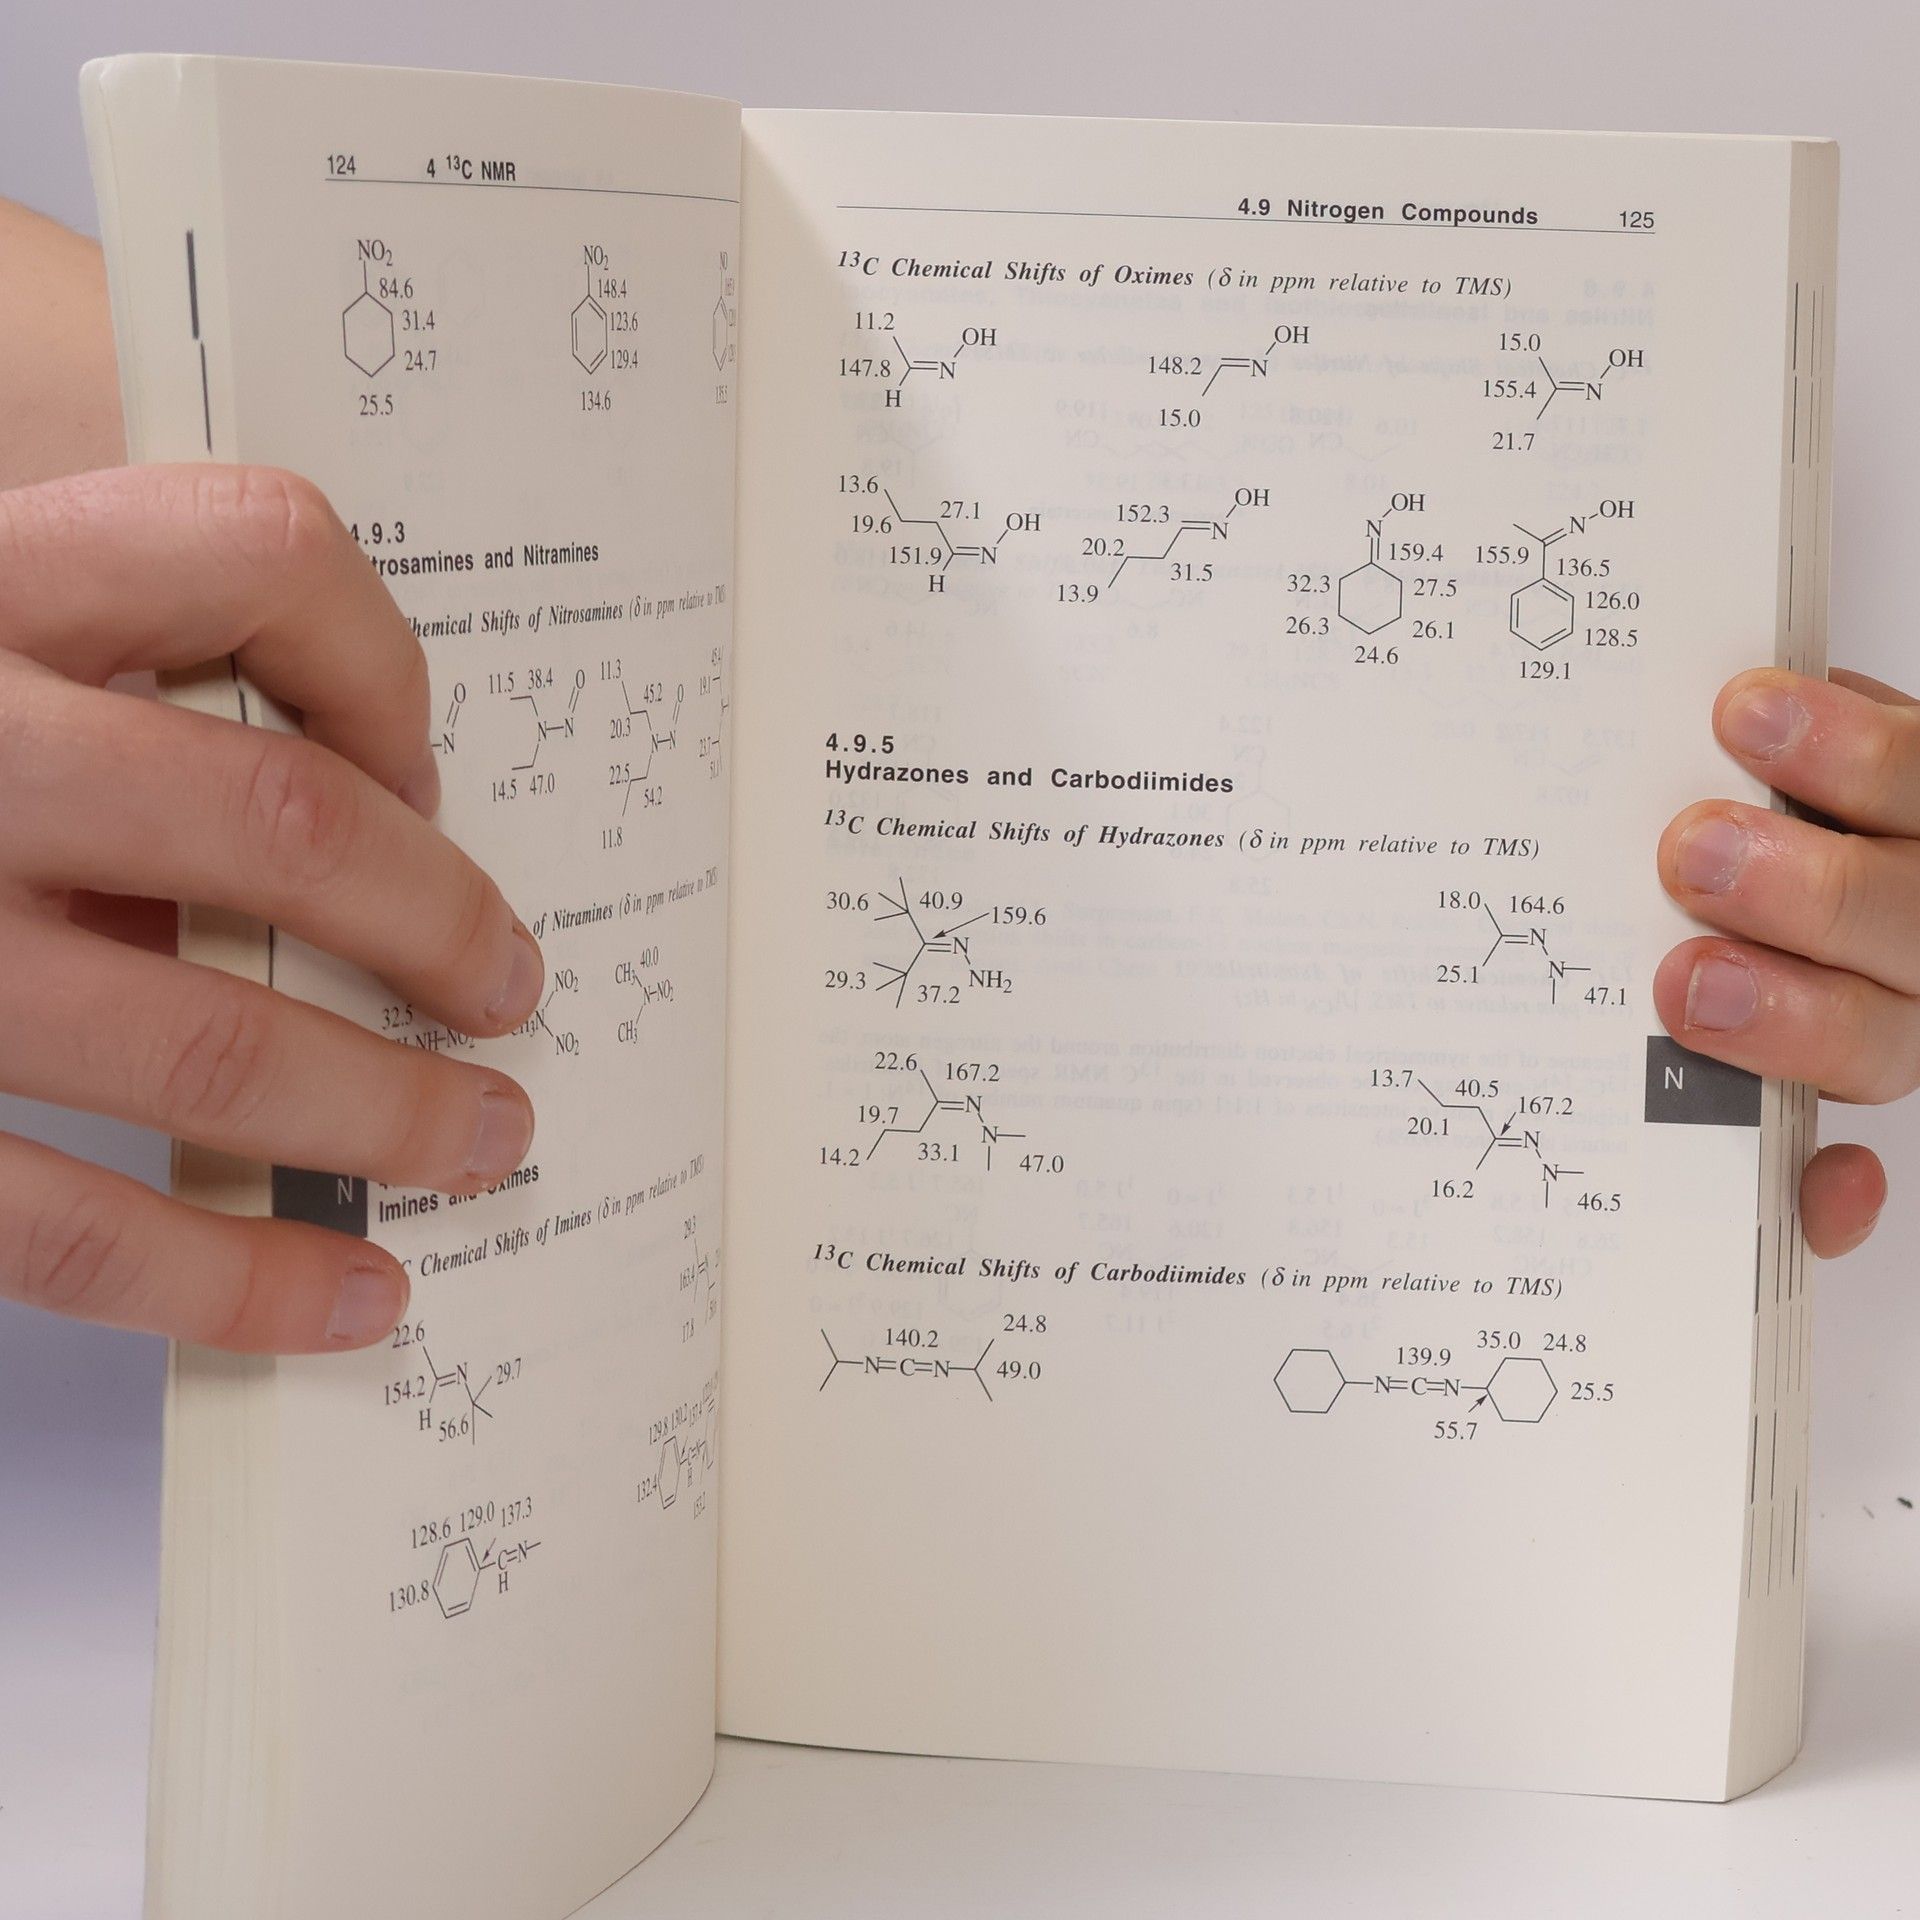 124 4 ¹³C NMR
NO₂ NO₂ NO
84.6 148.4
31.4 123.6
24.7 129.4
25.5 134.6
4.9.3
trosamines and Nitramines
Chemical Shifts of Nitrosamines (δ in ppm relative to TMS
11.5 38.4 O 11.3
O 45.2 O
N N–N 20.3 N–N
14.5 47.0 22.5
54.2
11.8
of Nitramines (δ in ppm relative to TMS)
NO₂ CH₃ 40.0
32.5 N–NO₂
NH–NO₂ NO₂ CH₃
N Imines and Oximes
C Chemical Shifts of Imines (δ in ppm relative to TMS)
29.3
163.4
17.8
22.6
154.2 N 29.7
H 56.6
129.8 130.2
132.4 C=N
H
128.6 129.0 137.3
130.8 C=N
H
4.9 Nitrogen Compounds 125
¹³C Chemical Shifts of Oximes (δ in ppm relative to TMS)
11.2 OH OH 15.0 OH
147.8 N 148.2 N 155.4 N
H 15.0 21.7
13.6 27.1 OH 152.3 OH OH OH
19.6 N N N
151.9 N 20.2 159.4 155.9 136.5
H 13.9 31.5 32.3 27.5 126.0
26.3 26.1 128.5
24.6 129.1
4.9.5
Hydrazones and Carbodiimides
¹³C Chemical Shifts of Hydrazones (δ in ppm relative to TMS)
30.6 40.9 159.6 18.0 164.6
N N
29.3 37.2 NH₂ 25.1 N 47.1
22.6 167.2 13.7 40.5 167.2
N
19.7 N 20.1 N
14.2 33.1 47.0 N
16.2 46.5
N
¹³C Chemical Shifts of Carbodiimides (δ in ppm relative to TMS)
140.2 24.8 139.9 35.0 24.8
N=C=N 49.0 N=C=N 25.5
55.7